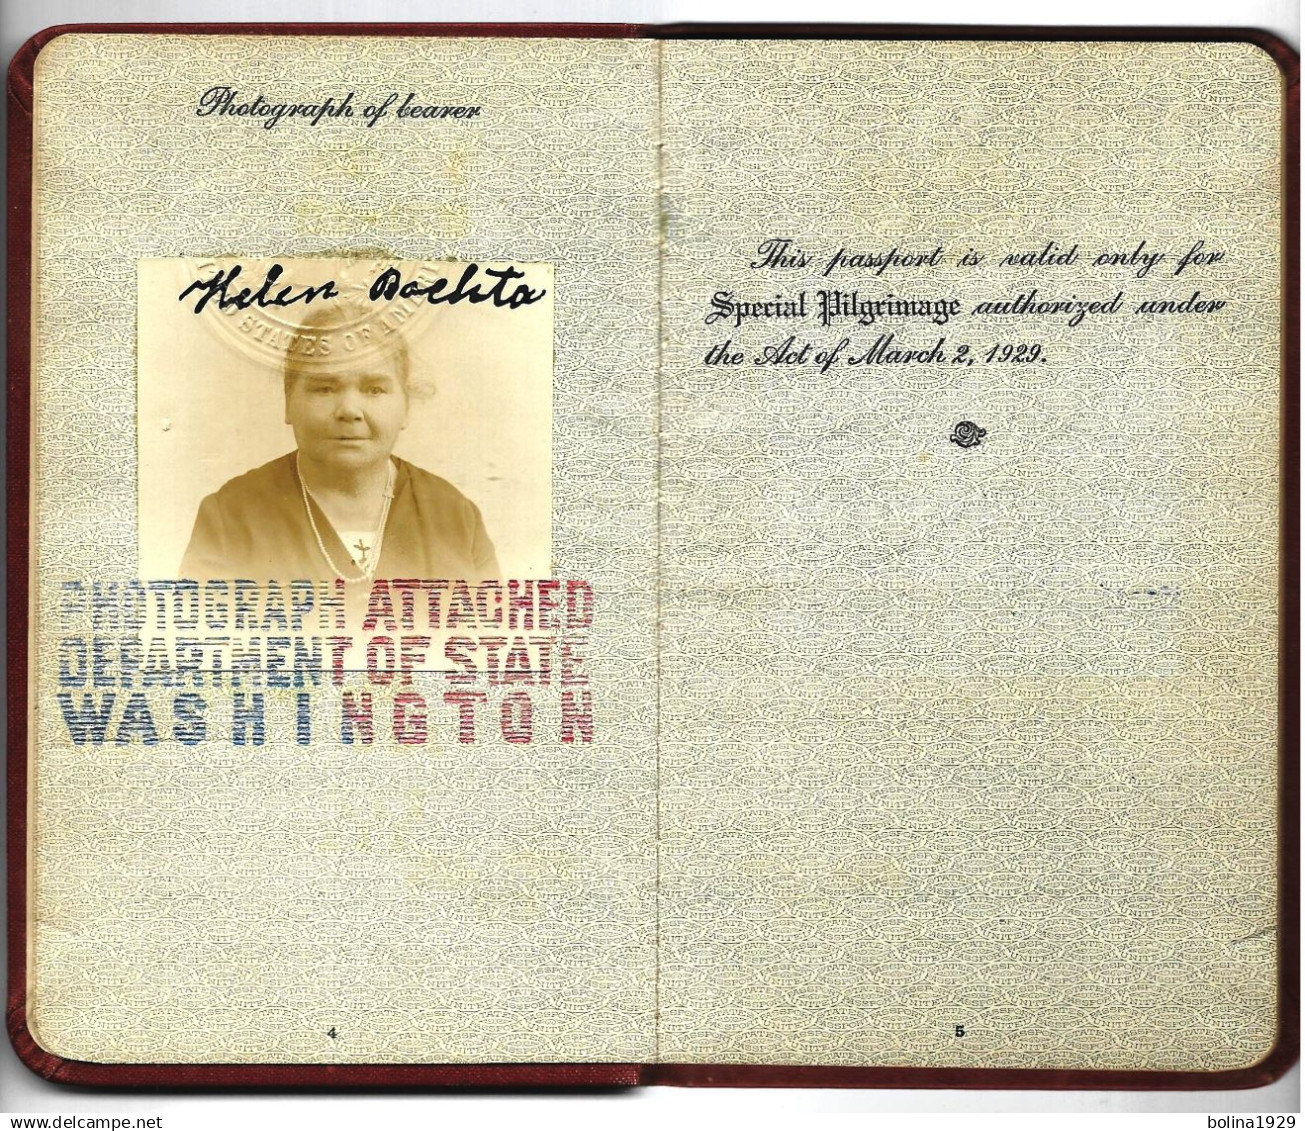 Photograph of bearer
Helen Bochta
STATES OF AM
PHOTOGRAPH ATTACHED
DEPARTMENT OF STATE
WASHINGTON
4
This passport is valid only for
Special Pilgrimage authorized under
the Act of March 2, 1929.
5
delcampe.net
bolina1929